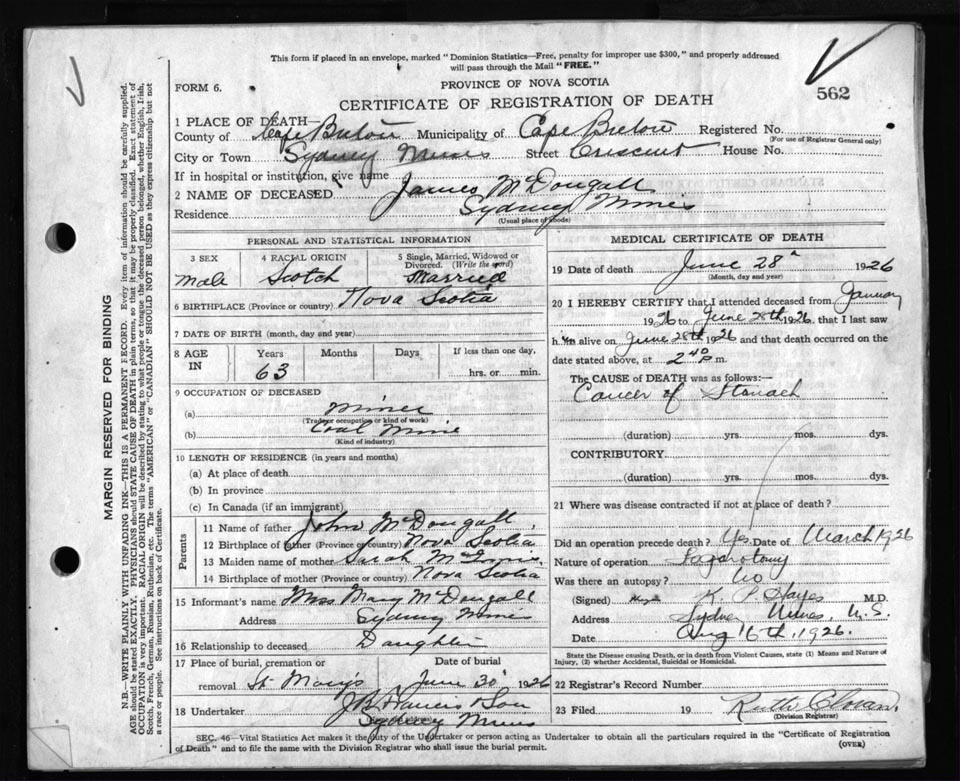 This form if placed in an envelope, marked "Dominion Statistics—Free, penalty for improper use $300," and properly addressed
will pass through the Mail "FREE."
FORM 6.
PROVINCE OF NOVA SCOTIA
562
CERTIFICATE OF REGISTRATION OF DEATH
1 PLACE OF DEATH—
County of Cape Breton Municipality of Cape Breton Registered No.
(For use of Registrar General only)
City or Town Sydney Mines Street Crescent House No.
If in hospital or institution, give name
2 NAME OF DECEASED James McDougall
Residence Sydney Mines
(Usual place of abode)
PERSONAL AND STATISTICAL INFORMATION
3 SEX 4 RACIAL ORIGIN 5 Single, Married, Widowed or
Divorced. (Write the word)
Male Scotch Married
6 BIRTHPLACE (Province or country) Nova Scotia
7 DATE OF BIRTH (month, day and year)
8 AGE IN Years Months Days If less than one day,
63 hrs. or min.
9 OCCUPATION OF DECEASED
(a) Miner
(Trade or occupation or kind of work)
(b) Coal Mine
(Kind of industry)
10 LENGTH OF RESIDENCE (in years and months)
(a) At place of death
(b) In province
(c) In Canada (if an immigrant)
Parents
11 Name of father John McDougall
12 Birthplace of father (Province or country) Nova Scotia
13 Maiden name of mother Sarah
14 Birthplace of mother (Province or country) Nova Scotia
15 Informant's name Miss Mary McDougall
Address Sydney Mines
16 Relationship to deceased Daughter
17 Place of burial, cremation or Date of burial
removal St Mary's June 30 1926
18 Undertaker J B Francis & Son
Sydney Mines
MEDICAL CERTIFICATE OF DEATH
19 Date of death June 28 1926
(Month, day and year)
20 I HEREBY CERTIFY that I attended deceased from January
1926 to June 28th 1926, that I last saw
him alive on June 28th 1926 and that death occurred on the
date stated above, at 2 40 P m.
The CAUSE of DEATH was as follows:—
Cancer of Stomach
(duration) yrs. mos. dys.
CONTRIBUTORY
(duration) yrs. mos. dys.
21 Where was disease contracted if not at place of death?
Did an operation precede death? Yes Date of March 1926
Nature of operation
Was there an autopsy? No
(Signed) K. P. Hayes M.D.
Address Sydney Mines, N.S.
Date Aug 16th, 1926.
State the Disease causing Death, or in death from Violent Causes, state (1) Means and Nature of
Injury, (2) whether Accidental, Suicidal or Homicidal.
22 Registrar's Record Number
23 Filed 19 Ruth
(Division Registrar)
SEC. 46—Vital Statistics Act makes it the duty of the Undertaker or person acting as Undertaker to obtain all the particulars required in the "Certificate of Registration
of Death" and to file the same with the Division Registrar who shall issue the burial permit.
(OVER)
MARGIN RESERVED FOR BINDING
N.B—WRITE PLAINLY, WITH UNFADING INK—THIS IS A PERMANENT RECORD. Every item of information should be carefully supplied.
AGE should be stated EXACTLY. PHYSICIANS should STATE CAUSE OF DEATH in plain terms, so that it may be properly classified. Exact statement of
OCCUPATION is very important. RACIAL ORIGIN will be described by stating to what people or tongue the deceased person belonged, whether English, Irish,
Scotch, French, German, Russian, Ruthenian, etc. The terms "AMERICAN" or "CANADIAN" SHOULD NOT BE USED as they express citizenship but not
a race or people. See instructions on back of Certificate.